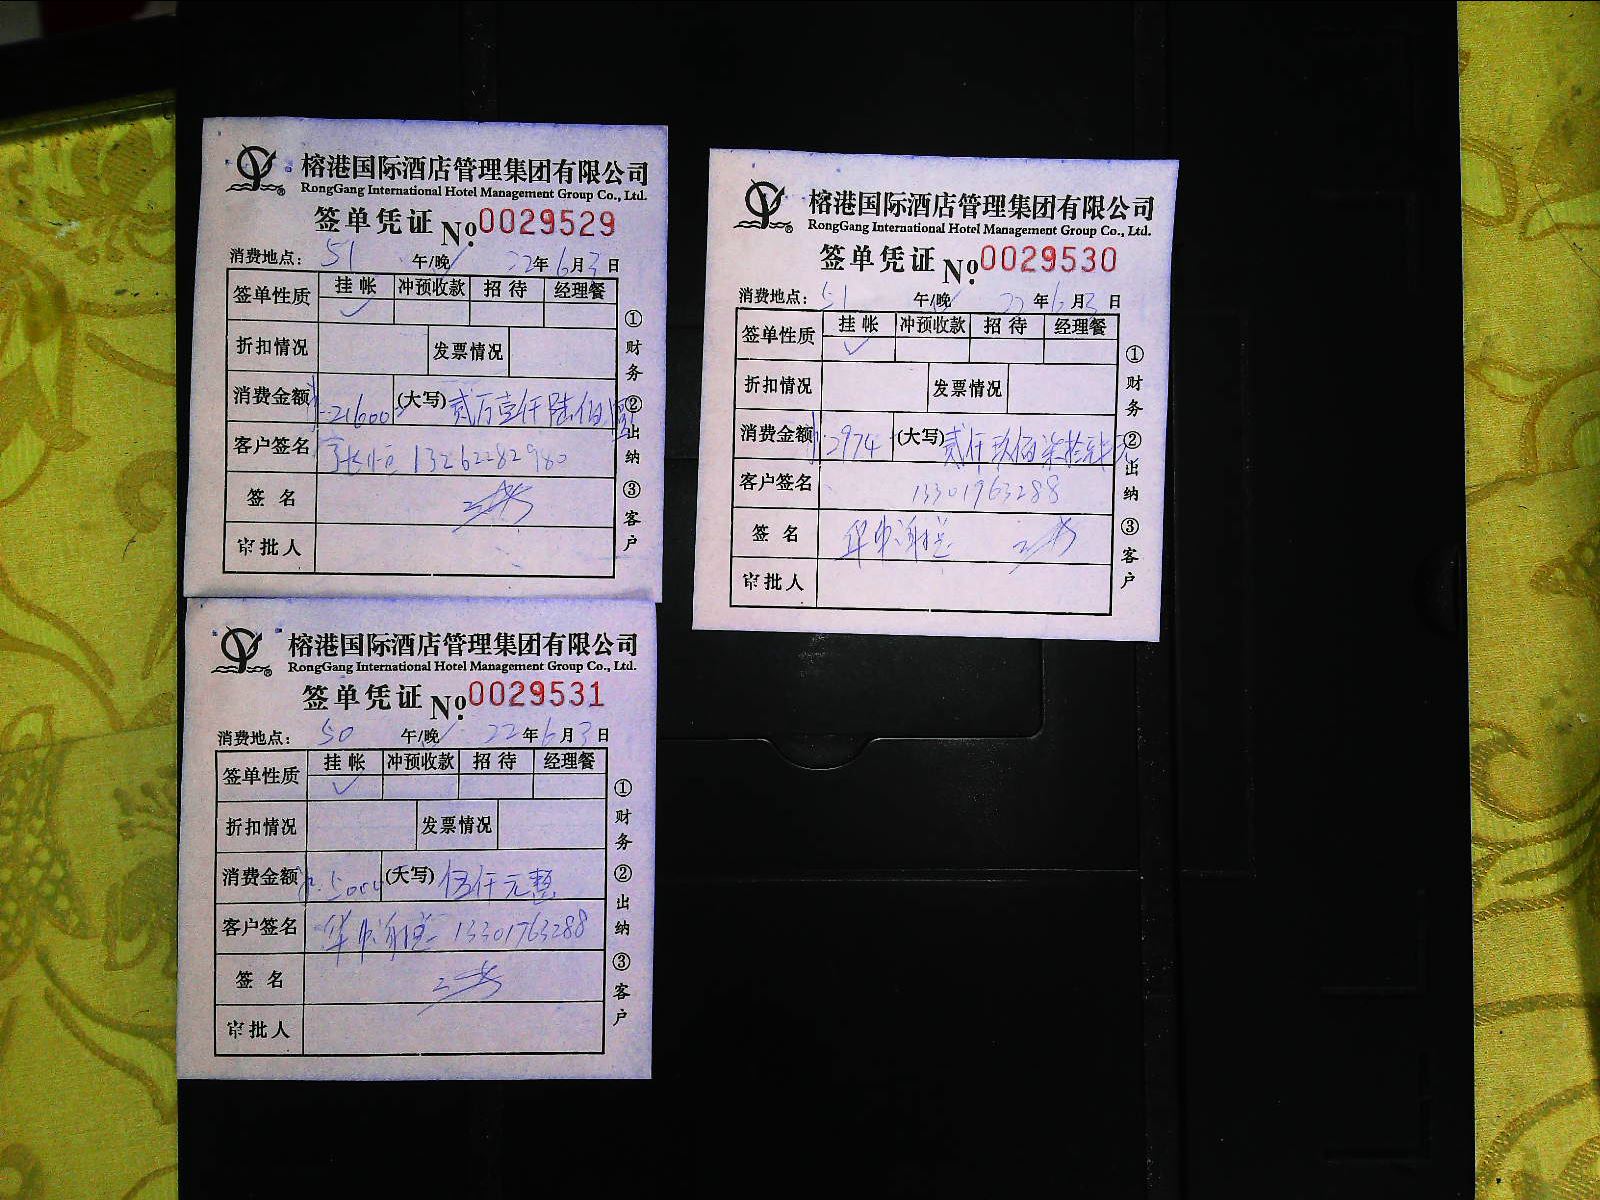 榕港国际酒店管理集团有限公司
RongGang International Hotel Management Group Co., Ltd.
签单凭证 No.0029529
消费地点: 51 午/晚✓ 22年6月3日
签单性质 挂帐 冲预收款 招待 经理餐
✓
折扣情况 发票情况
消费金额 ¥:21600 (大写) 贰万壹仟陆佰
客户签名 13262282980
签名
审批人
①财务 ②出纳 ③客户
榕港国际酒店管理集团有限公司
RongGang International Hotel Management Group Co., Ltd.
签单凭证 No.0029530
消费地点: 51 午/晚✓ 22年6月3日
签单性质 挂帐 冲预收款 招待 经理餐
✓
折扣情况 发票情况
消费金额 ¥:2974 (大写) 贰仟玖佰柒拾肆元
客户签名 13301763288
签名
审批人
①财务 ②出纳 ③客户
榕港国际酒店管理集团有限公司
RongGang International Hotel Management Group Co., Ltd.
签单凭证 No.0029531
消费地点: 50 午/晚✓ 22年6月3日
签单性质 挂帐 冲预收款 招待 经理餐
✓
折扣情况 发票情况
消费金额 ¥:5000 (大写) 伍仟元整
客户签名 13301763288
签名
审批人
①财务 ②出纳 ③客户